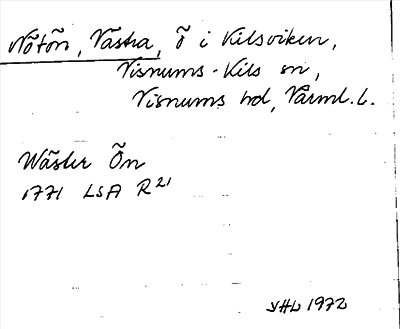 Nötön, Västra, ö i Kilsviken,
Visnums-Kils sn,
Visnums hd, Värml. l.
Wäster Ön
1771 LSA R21
VHL 1972